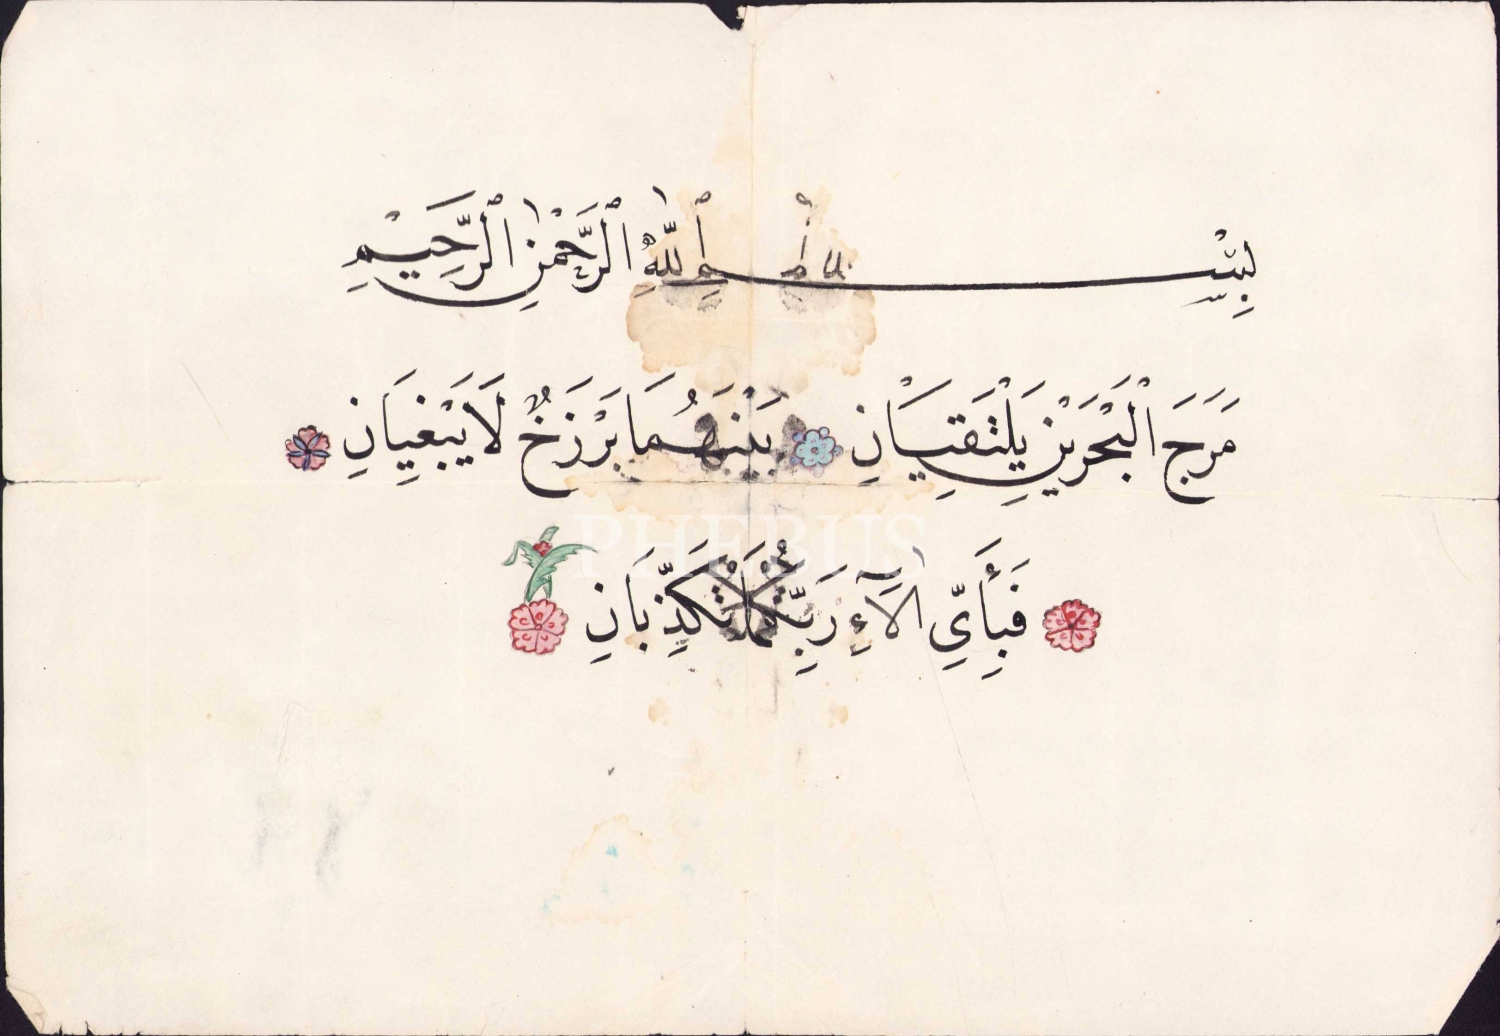 بِسْمِ اللَّهِ الرَّحْمٰنِ الرَّحِيمِ
مَرَجَ الْبَحْرَيْنِ يَلْتَقِيَانِ بَيْنَهُمَا بَرْزَخٌ لَا يَبْغِيَانِ
PHEBUS
فَبِأَيِّ اٰلَآءِ رَبِّكُمَا تُكَذِّبَانِ